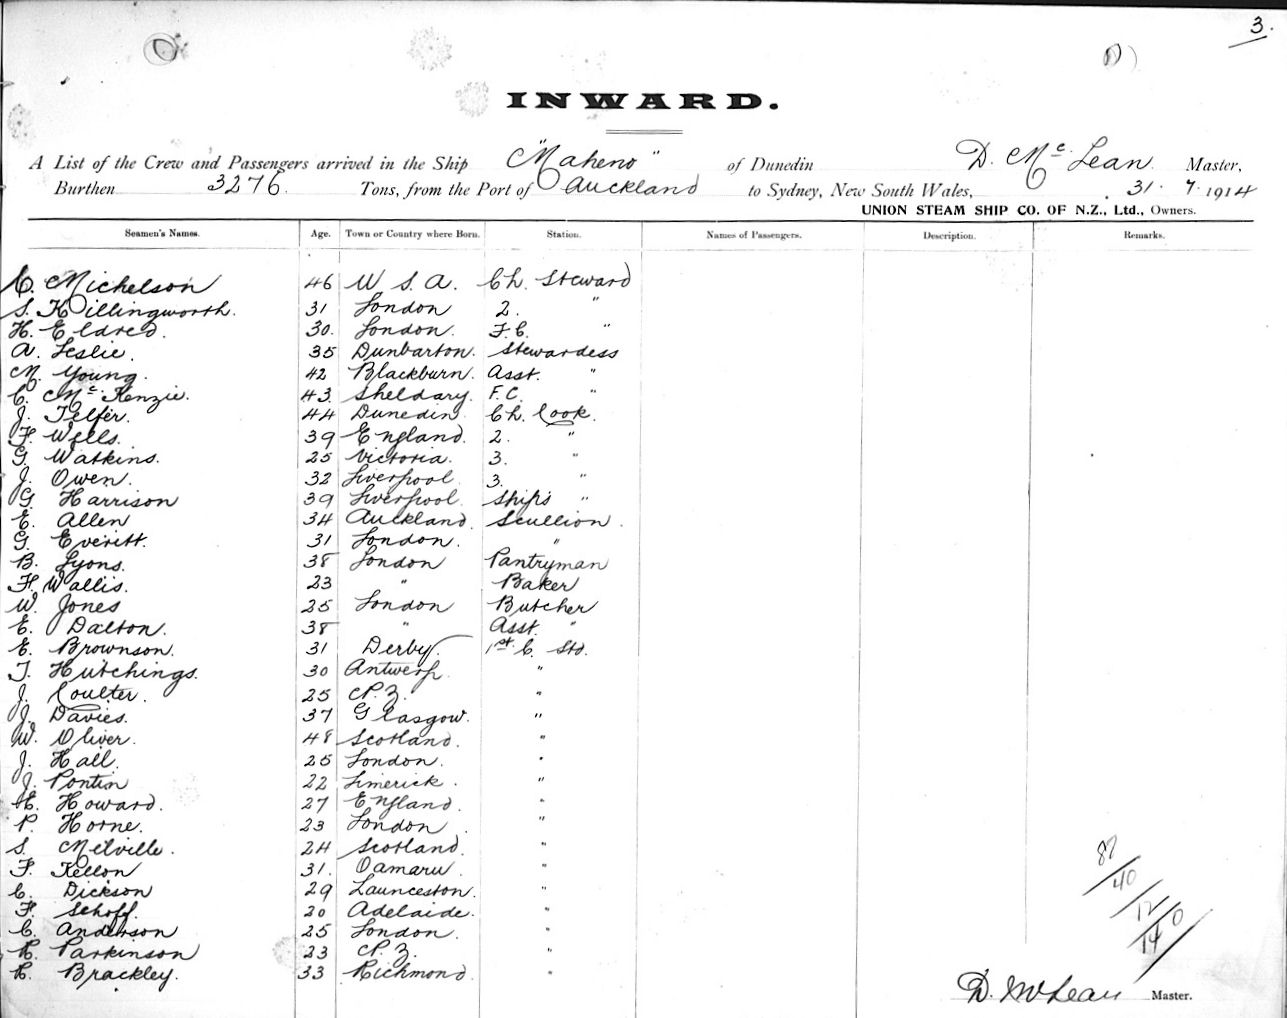 3.
INWARD.
A List of the Crew and Passengers arrived in the Ship "Maheno" of Dunedin D. McLean. Master,
Burthen 3276. Tons, from the Port of Auckland to Sydney, New South Wales, 31. 7. 1914
UNION STEAM SHIP CO. OF N.Z., Ltd., Owners.
Seamen's Names. Age. Town or Country where Born. Station. Names of Passengers. Description. Remarks.
C. Michelson 46 U S. A. Ch. Steward
S. Killingworth. 31 London 2. "
H. Eldred. 30. London. F.C. "
A. Leslie. 35 Dunbarton. Stewardess
M. Young. 42 Blackburn. Asst. "
C. McKenzie. 43. F.C. "
J. Telfer. 44 Dunedin. Ch. Cook.
F. Wells. 39 England. 2. "
G. Watkins. 25 Victoria. 3. "
J. Owen. 32 Liverpool 3. "
G. Harrison 39 Liverpool. Ship's "
E. Allen 34 Auckland. Scullion.
G. Everitt. 31 London. "
B. Lyons. 38 London Pantryman
F. Wallis. 23 " Baker
W. Jones 25 London Butcher
E. Dalton. 38 " Asst. "
E. Brownson. 31 Derby. 1st C. Std.
T. Hutchings. 30 Antwerp. "
J. Coulter. 25 N.Z. "
J. Davies. 37 Glasgow. "
W. Oliver. 48 Scotland. "
J. Hall. 25 London. "
J. Pontin 22 Limerick. "
H. Howard. 27 England. "
P. Horne. 23 London. "
S. Melville. 24 Scotland. "
F. Kellon 31. Oamaru. "
C. Dickson 29 Launceston. "
F. Schoff. 20 Adelaide. "
C. Anderson 25 London. "
R. Parkinson 23 N.Z. "
R. Brackley. 33 Richmond. "
87
40
12
14
0
D. McLean Master.